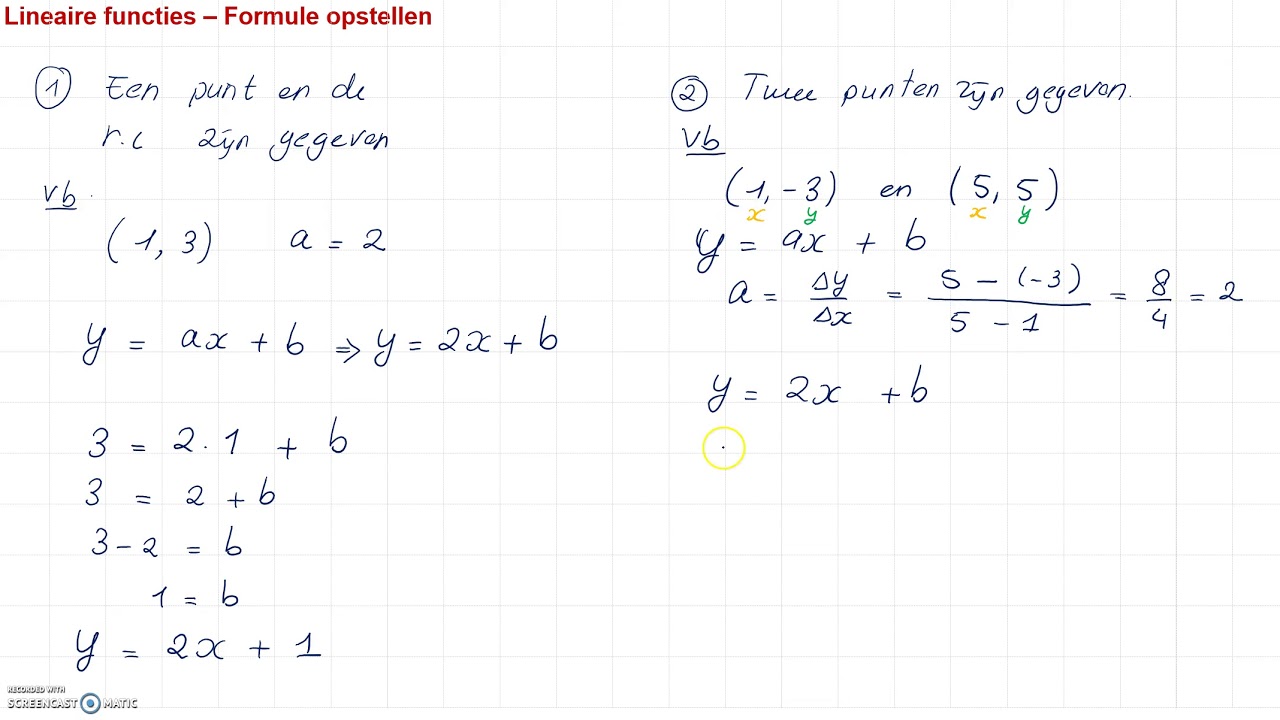 Lineaire functies – Formule opstellen
① Een punt en de
r.c zijn gegeven
vb.
(1, 3) a = 2
y = ax + b ⇒ y = 2x + b
3 = 2 . 1 + b
3 = 2 + b
3 - 2 = b
1 = b
y = 2x + 1
② Twee punten zijn gegeven.
Vb
(1, -3) en (5, 5)
x y x y
y = ax + b
a = Δy/Δx = 5 - (-3)/5 - 1 = 8/4 = 2
y = 2x + b
RECORDED WITH
SCREENCAST MATIC